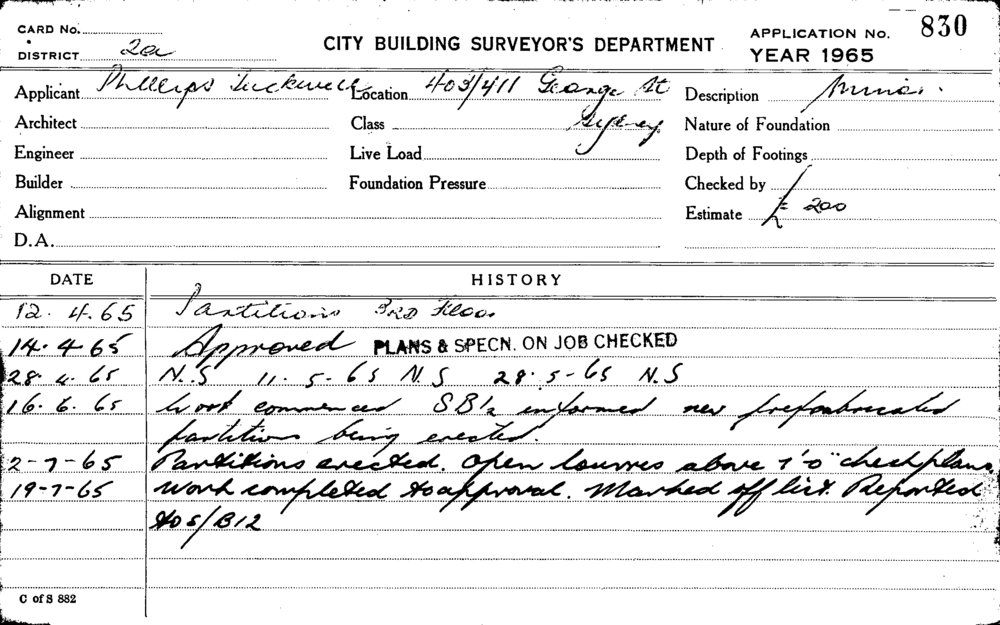 CARD No.
DISTRICT 2a
CITY BUILDING SURVEYOR'S DEPARTMENT
APPLICATION No. 830
YEAR 1965
Applicant Phillips Tuckwell
Location 403/411 George St Sydney
Description Minor.
Architect
Class
Nature of Foundation
Engineer
Live Load
Depth of Footings
Builder
Foundation Pressure
Checked by
Alignment
Estimate £ 200
D.A.
DATE HISTORY
12. 4. 65 Partitions 3RD Floor
14. 4. 65 Approved PLANS & SPECN. ON JOB CHECKED
28. 4. 65 N.S 11. 5. 65 N.S 28. 5-65 N.S
16. 6. 65 Work commenced informed new prefabricated
partitions being erected.
2-7-65 Partitions erected. Open louvres above 7'0" check plans
19-7-65 Work completed to approval. Marked off list. Reported
to S/B12
C of S 882